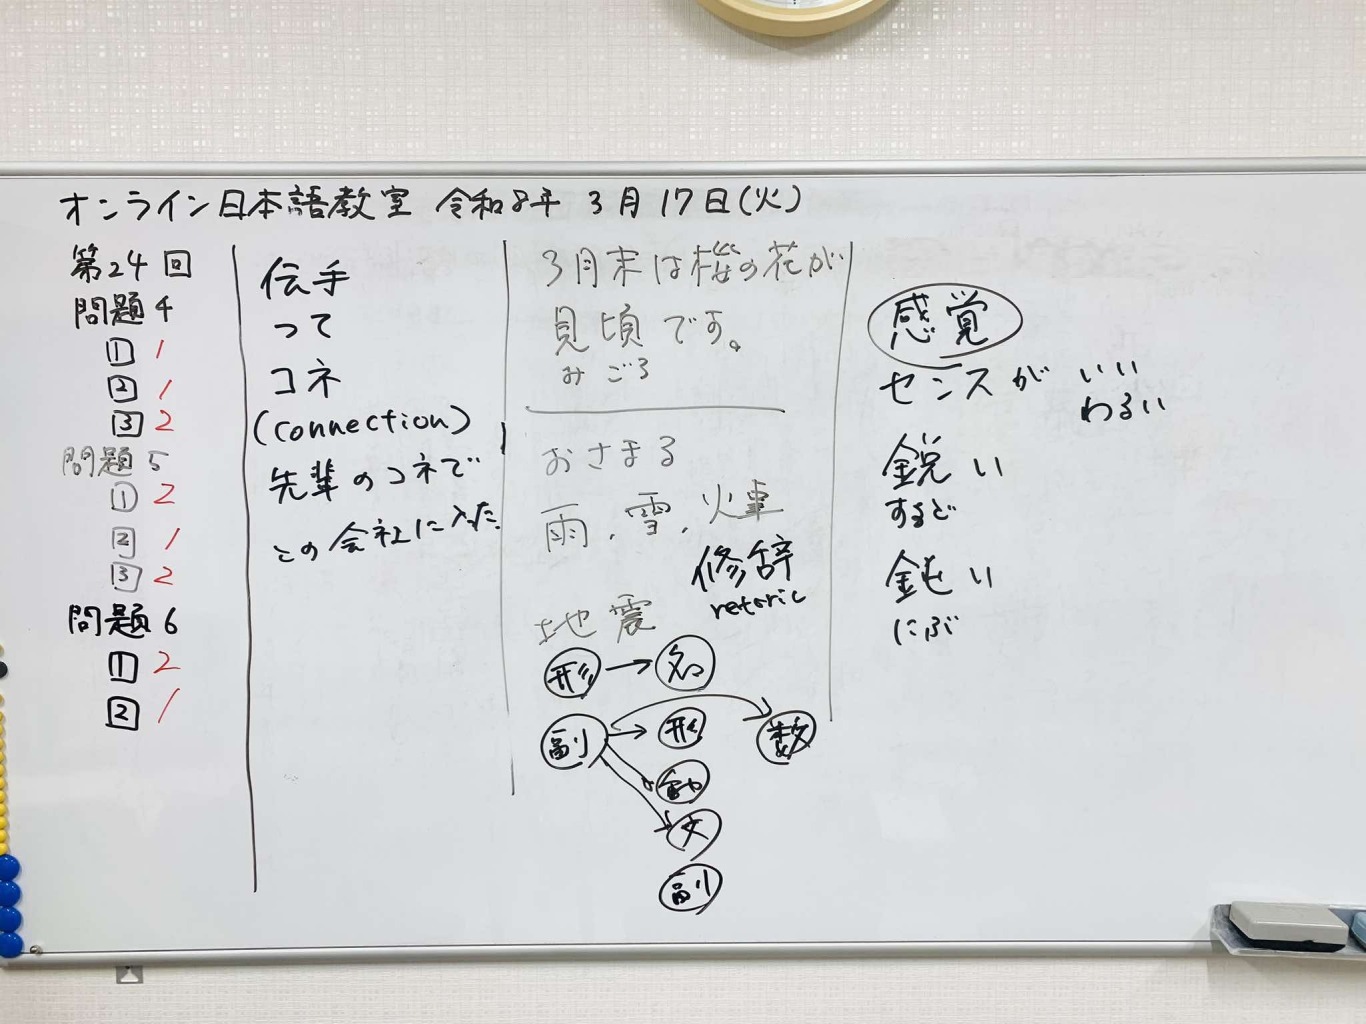 オンライン日本語教室 令和8年 3月17日(火)
第24回
問題4
1 1
2 1
3 2
問題5
1 2
2 1
3 2
問題6
1 2
2 1
伝手
って
コネ
(connection)
先輩のコネで
この会社に入った。
3月末は桜の花が
見頃です。
みごろ
おさまる
雨、雪、火事
修辞
retoric
地震
形→名
副→形
数
動
文
副
感覚
センスが いい
わるい
鋭い
するど
鈍い
にぶ